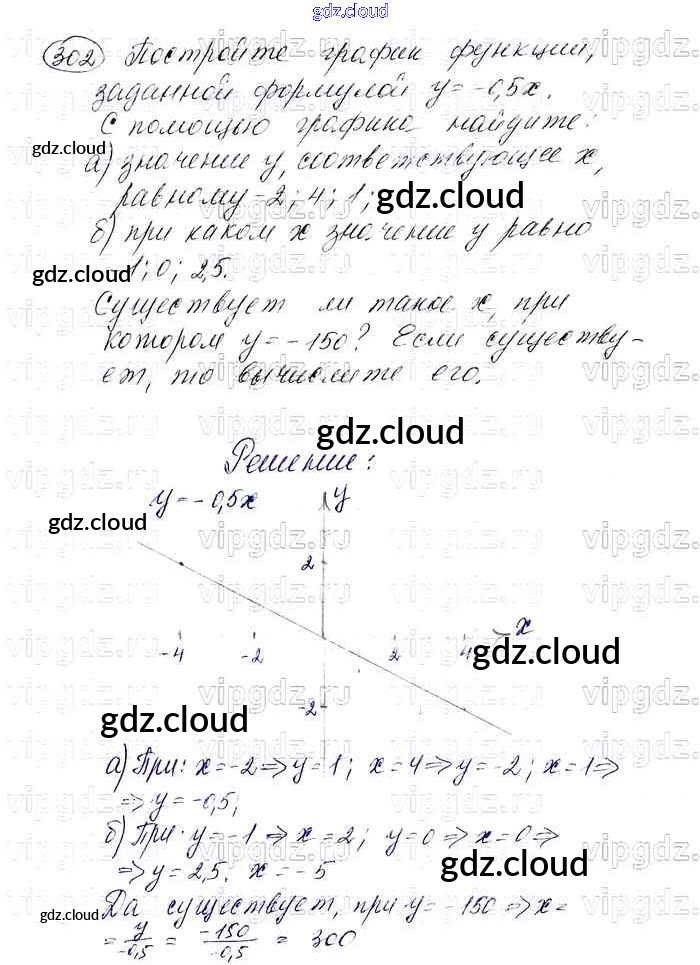 gdz.cloud
302 Постройте график функции,
заданной формулой y = -0,5x.
С помощью графика найдите:
gdz.cloud
а) значение y, соответствующее x,
равному -2; 4; 1;
gdz.cloud
б) при каком x значение y равно
gdz.cloud
1; 0; 2,5.
Существует ли такое x, при
котором y = -150? Если существу-
ет, то вычислите его.
gdz.cloud
Решение:
y = -0,5x
y
gdz.cloud
2
x
-4 -2 2 4
gdz.cloud
-2
gdz.cloud
а) При: x = -2 => y = 1; x = 4 => y = -2; x = 1 =>
=> y = -0,5;
б) При y = -1 => x = 2; y = 0 => x = 0 =>
=> y = 2,5, x = -5
gdz.cloud
Да существует, при y = -150 => x =
gdz.cloud
= y/-0,5 = -150/-0,5 = 300